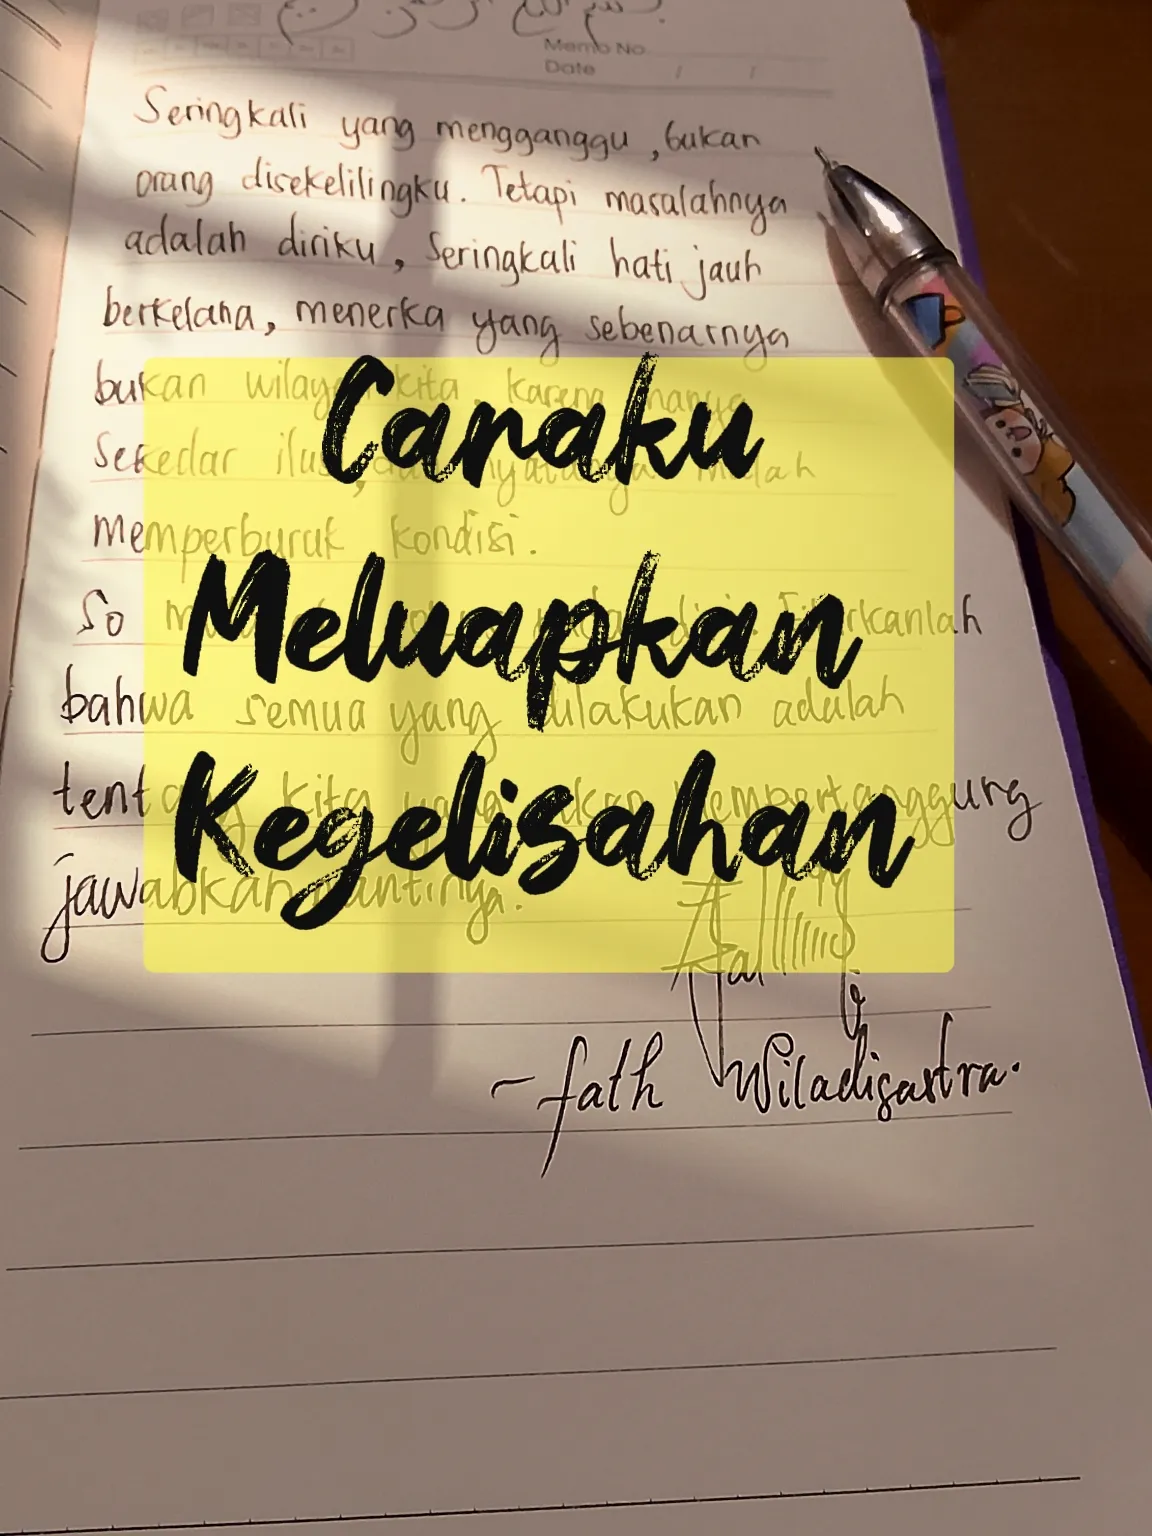 بسم الله الرحمن
Memo No
Date / /
Seringkali yang mengganggu, bukan
orang disekelilingku. Tetapi masalahnya
adalah diriku, Seringkali hati jauh
berkelana, menerka yang sebenarnya
bukan wilayah kita, karena hanya
Sekedar
memperburuk kondisi.
So
bahwa semua yang dilakukan adalah
tentang kita yang akan mempertanggung
jawabkan nantinya.
Caraku
Meluapkan
Kegelisahan
- fath Wiladisastra.